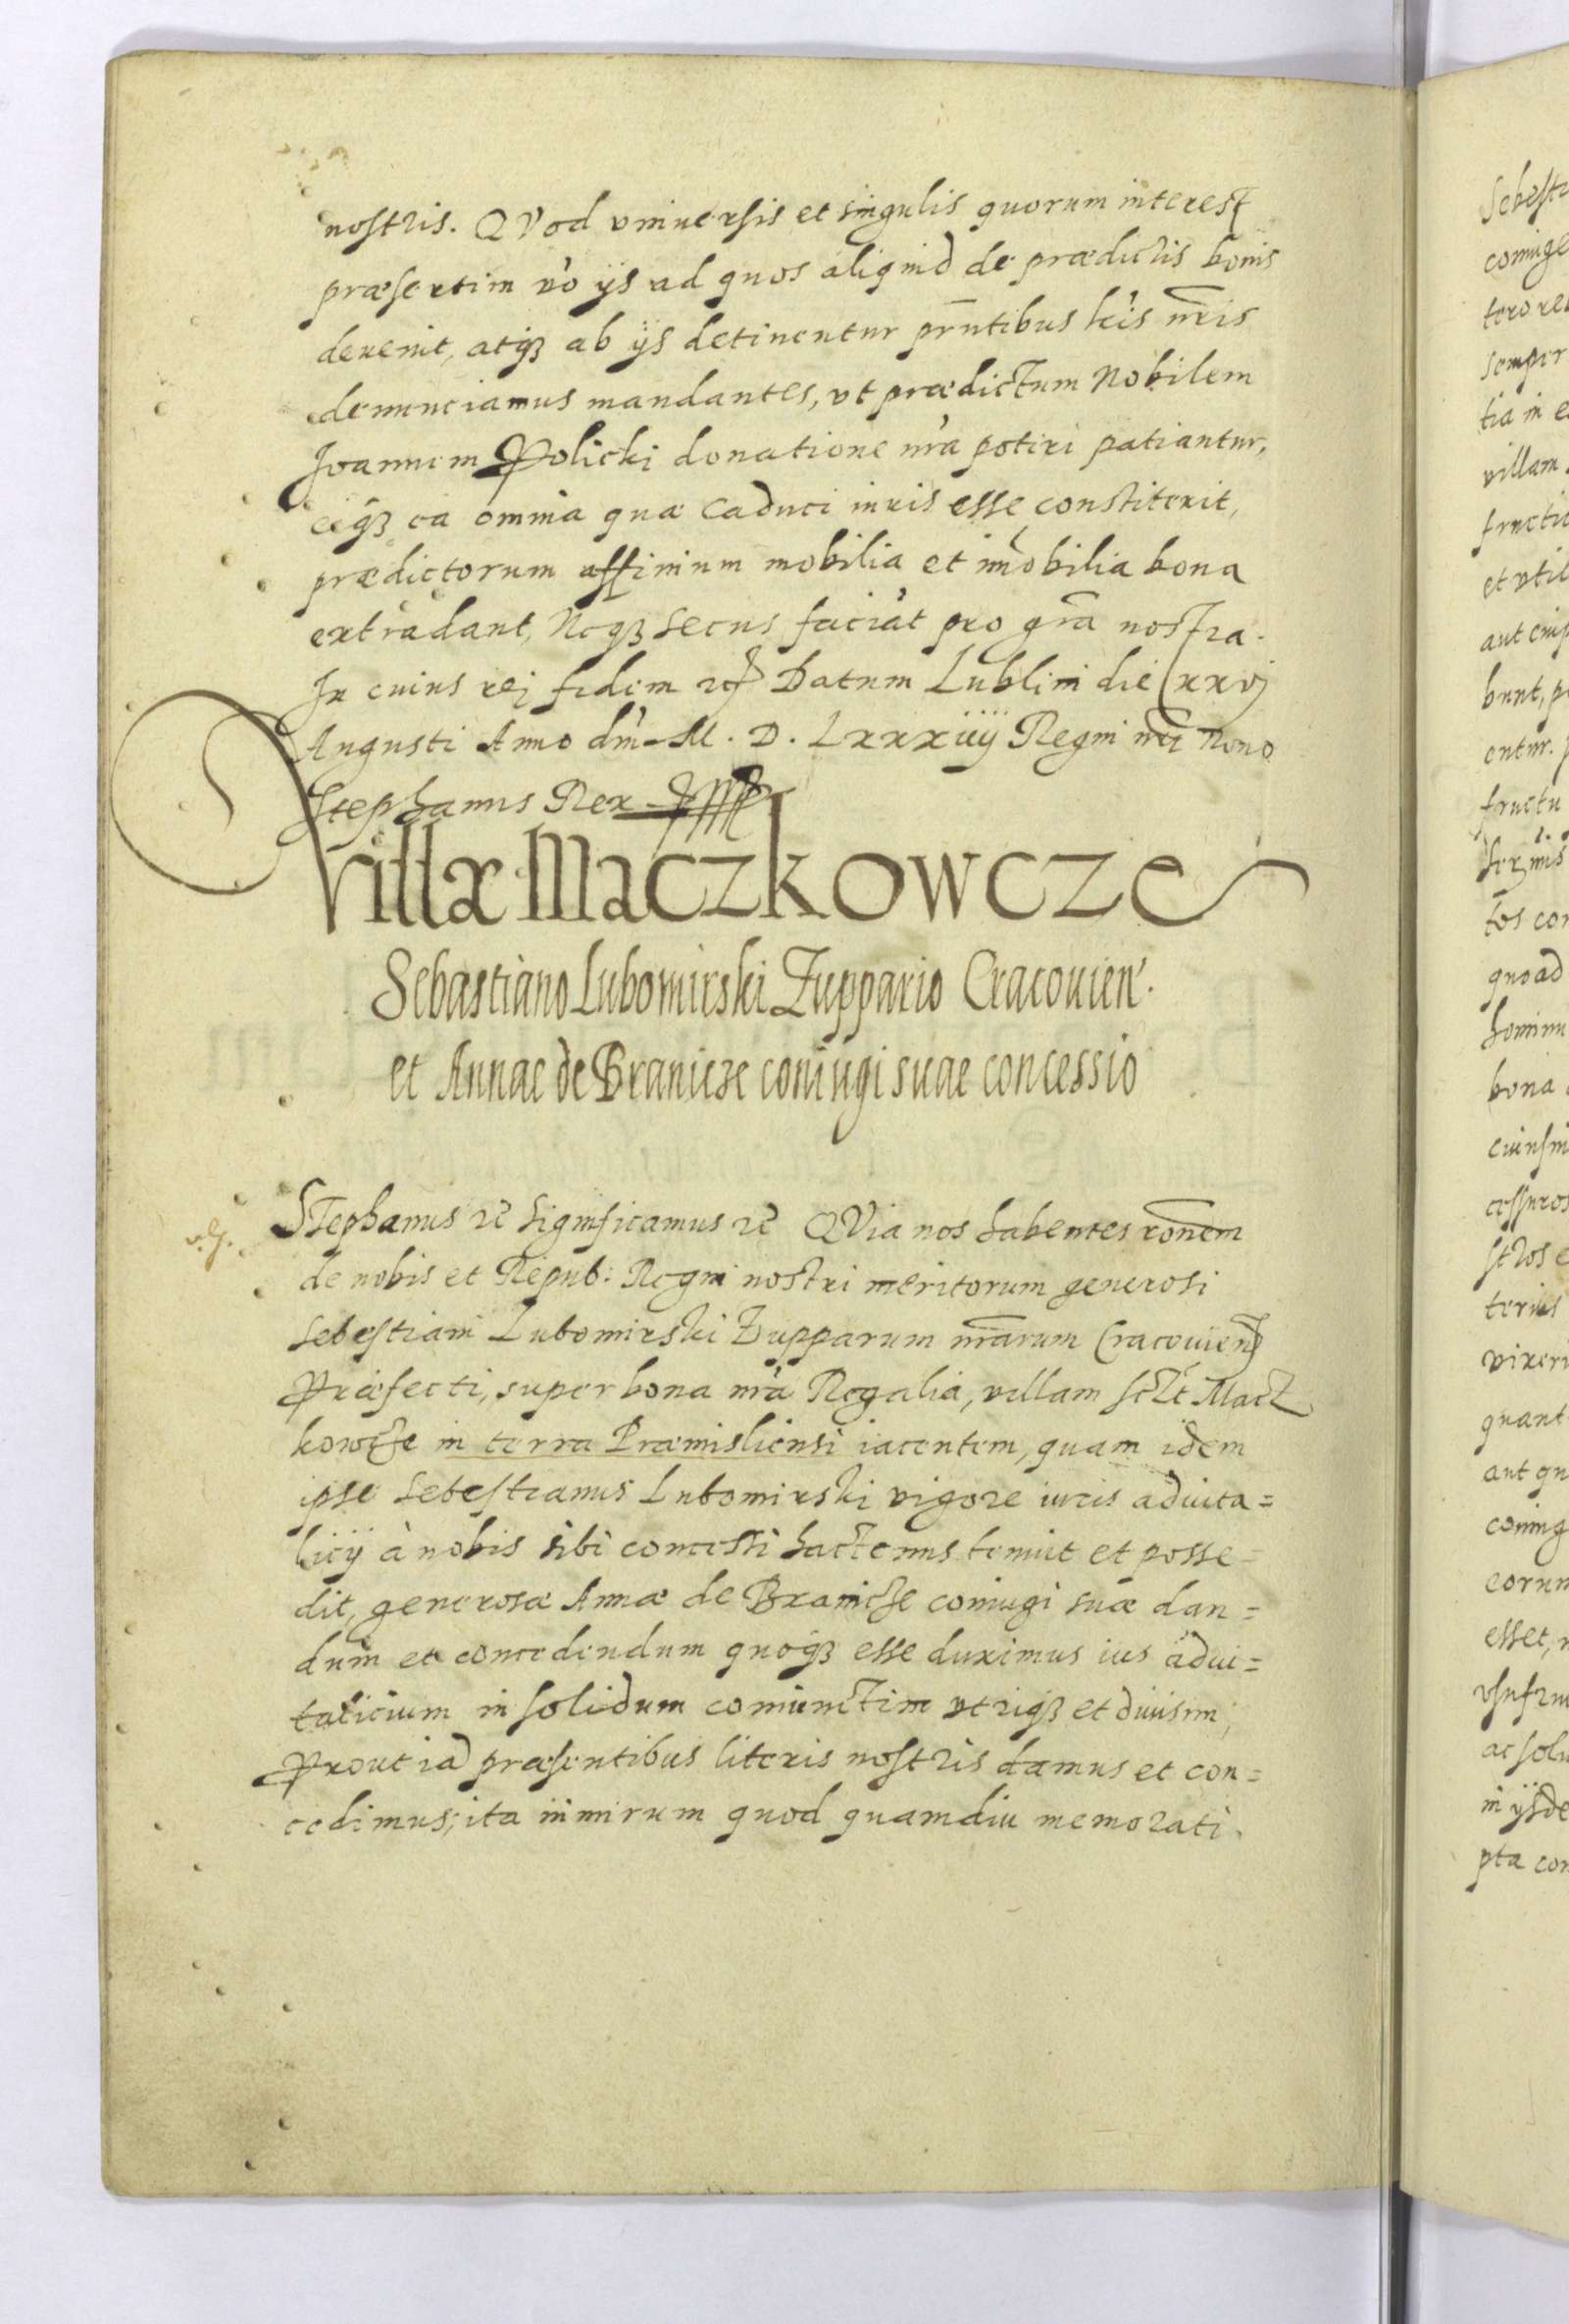 nostris. QVod vniuersis et singulis quorum interest
præsertim vo ijs ad quos aliquid de prædictis bonis
deuenit, atqȝ ab ijs detinentur pñtibus lris nris
denunciamus mandantes, vt prædictum Nobilem
Joannem Policki donatione nra potiri patiantur,
eiqȝ ea omnia quæ caduci iuris esse constiterit,
prædictorum affinium mobilia et im̃obilia bona
extradant, Neqȝ secus faciat pro gra nostra.
In cuius rej fidem Datum Lublini die xxvj
Augusti Anno dni M. D. Lxxxiiij Regni nri Nono
Stephanus Rex
Villæ Maczkowcze
Sebastiano Lubomirski Zuppario Cracouien.
et Annae de Branicze coniugi suae concessio
v. g.
STephanus Significamus QVia nos habentes ronem
de nobis et Repub: Regni nostri meritorum generosi
Sebestiani Lubomirski Zupparum nrarum Cracouien
Præfecti, super bona nra Regalia, villam Macz
kowcze in terra Præmisliensi iacentem, quam idem
ipse Sebestianus Lubomirski vigore iuris aduita=
licij à nobis sibi concessi hactenus tenuit et posse=
dit, generosæ Annæ de Branicze coniugi suæ dan=
dum et concedendum quoqȝ esse duximus ius adui=
talicium in solidum coniunctim vtriqȝ et diuisim,
Prout id præsentibus literis nostris damus et con=
cedimus; ita nimirum quod quamdiu memorati